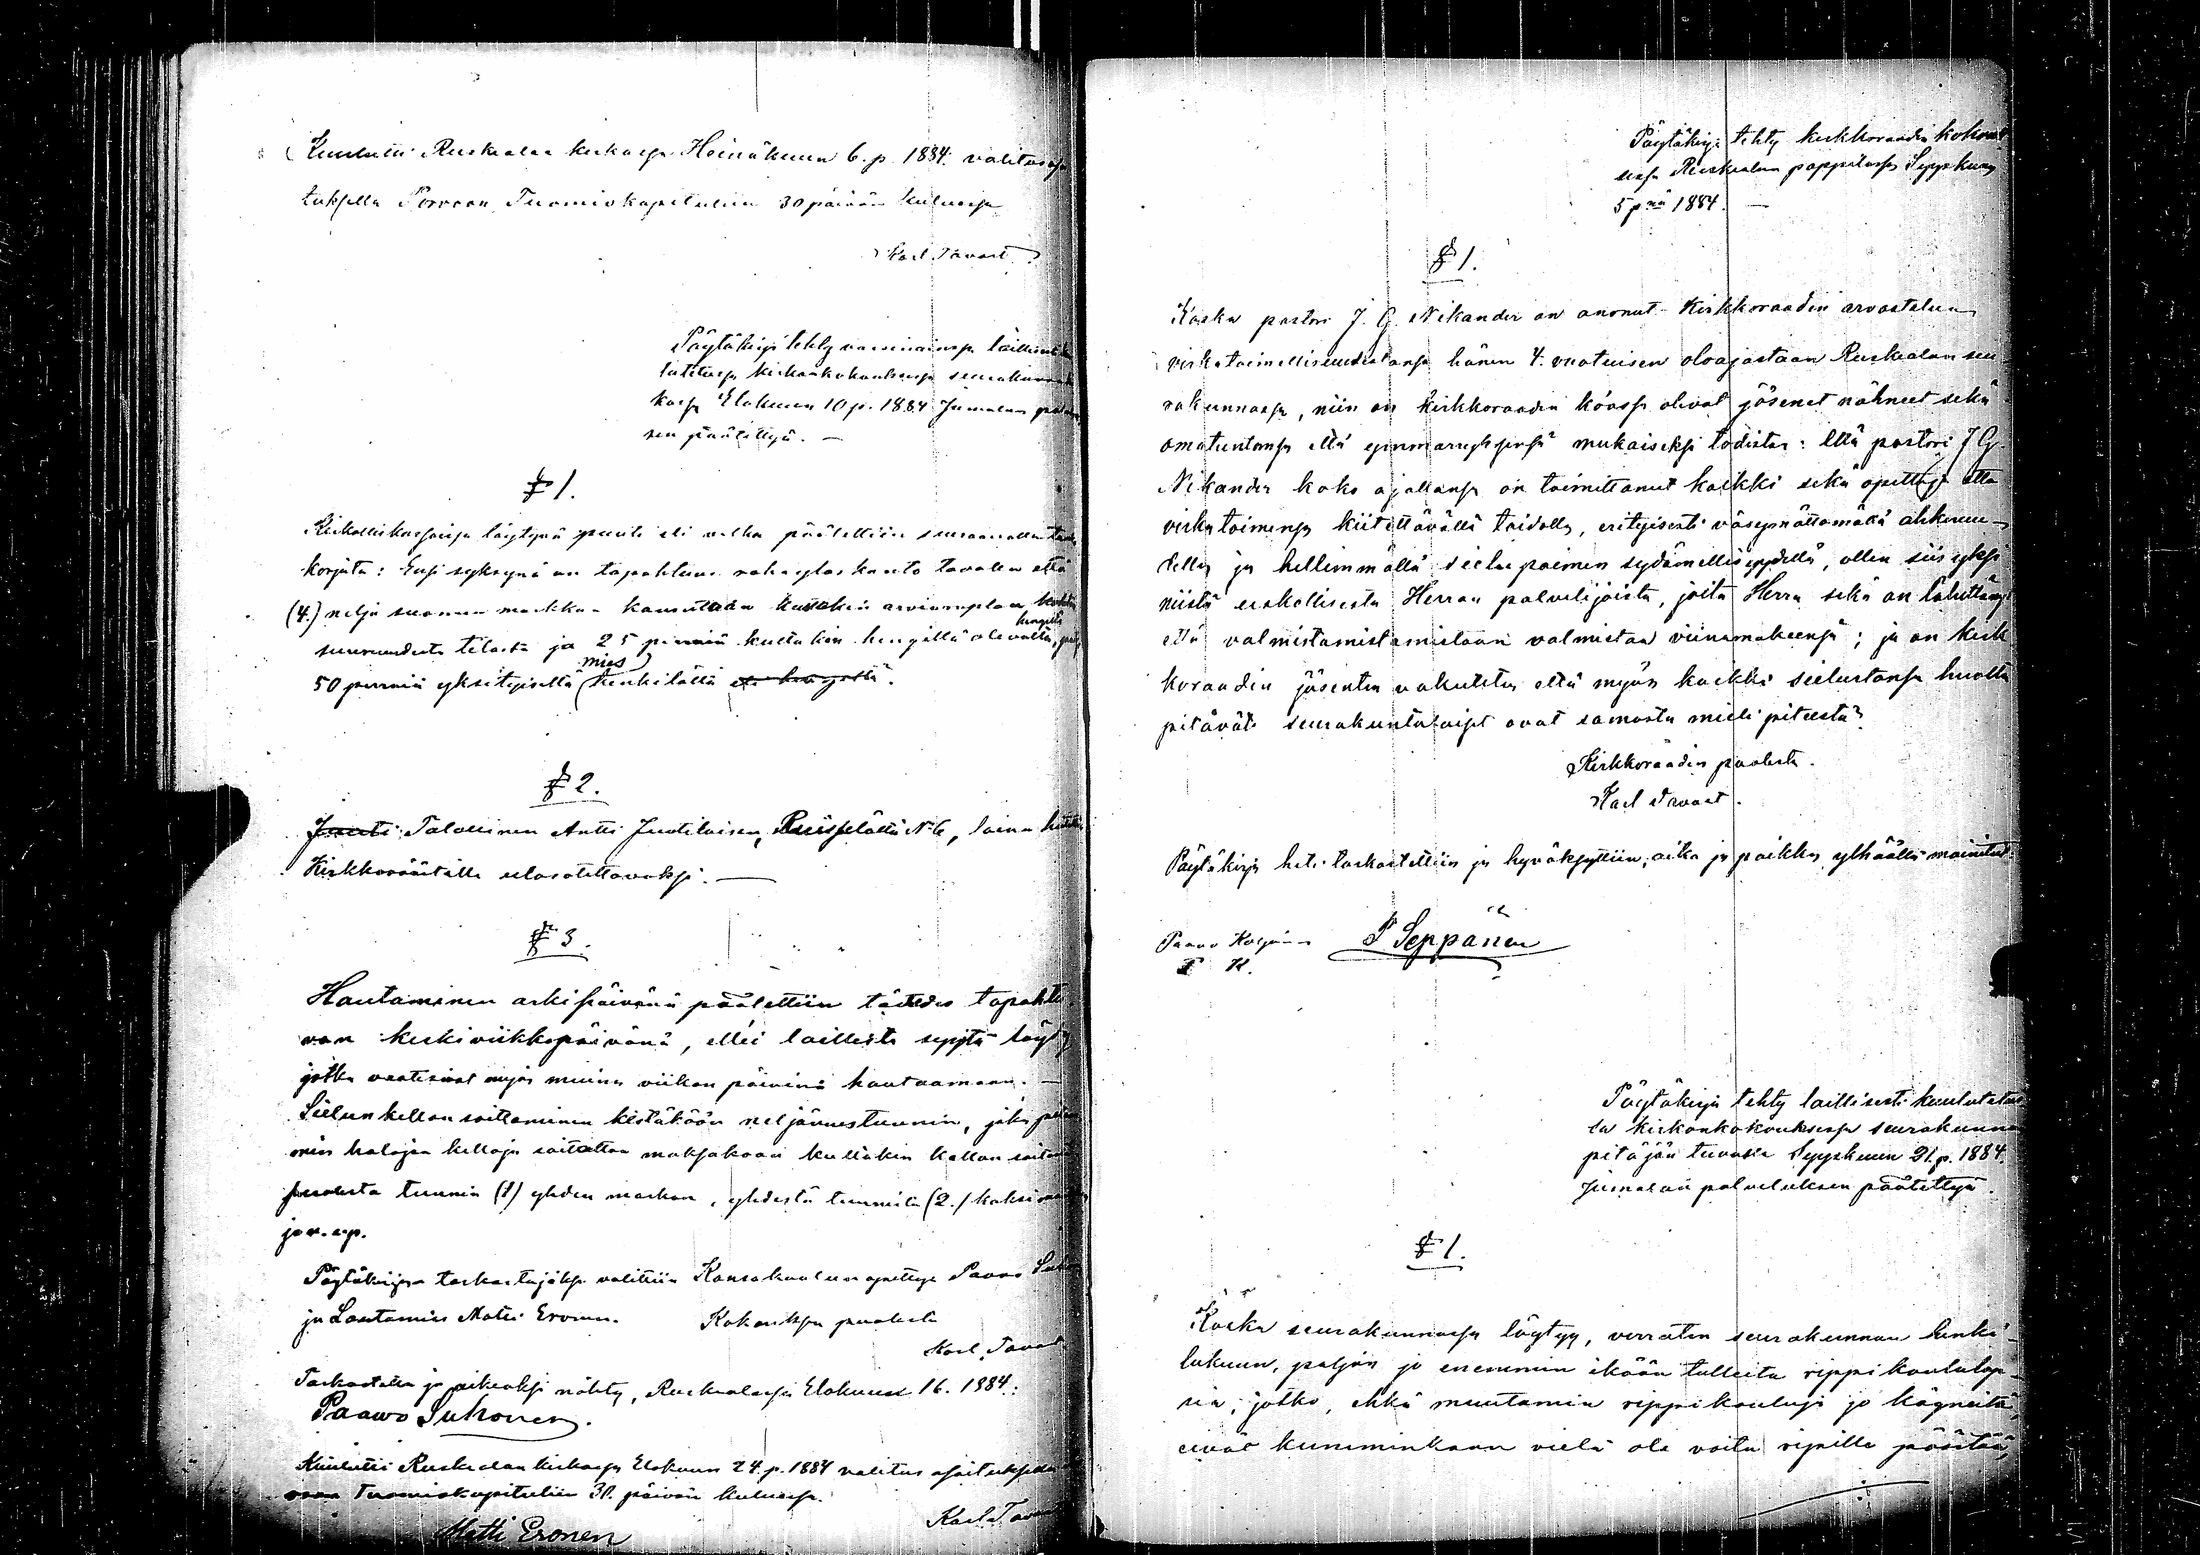 Kuulutti Ruskealan kirkossa Heinäkuun 6. p. 1884 valitusosa
tuksella Porvoon Tuomiokapituliin 30 päivän kuluessa
Karl Tavast
Pöytäkirja tehty varsinaisessa laillisesti
kirkonkokouksessa
Elokuun 10 p. 1884 Jumalan
sen päätettyä. —
§ 1.
löytyvä eli velka päätettiin
korjata: Ensi syksynä on tapahtuva rahaylöskanto tavalla että
(4.) neljä suomen markkaa
hengeltä
suuruudesta tilasta ja 25 penniä kultakin hengillä olevalta,
mies
50 penniä yksityiseltä henkilöltä
§ 2.
Talollinen Antti Juutilaisen, N:6, laina
Kirkkoväärtille ulosotettavaksi. —
§ 3.
Hautaminen arkipäivänä päätettiin täitedes tapahtu
van keskiviikkopäivänä, ellei laillista syytä löyt
jotka vaatisivat myös muina viikon päivinä hautaamaan. —
Sielunkellon soittaminen kestäköön neljännestunnin, joka
min halajaa kelloja soitattaa maksakoon kullakin kellon
puolesta tunnin (1) yhden markan, yhdestä tunnista (2.) kaksi
ja n. e. p.
Pöytäkirjan tarkastajaksi valittiin Kansakoulun opettaja Paavo
ja Lautamies Matti Eronen. Kokouksen puolesta
Karl Tavast
Tarkastettu ja oikeaksi nähty, Ruskealassa Elokuun 16. 1884:
Paawo Suhonen.
Kuulutti Ruskealan kirkossa Elokuun 24. p. 1884 valitus osoituksella
Tuomiokapituliin 30. päivän kuluessa.
Karl Tavast
Matti Eronen
Pöytäkirja tehty kirkkoraadin kokouk
sessa Ruskealan pappilassa Syyskuun
5 pnä 1884. —
§ 1.
Koska pastori J. G. Nikander on anonut Kirkkoraadin arvostelun
virkatoimellisuudestansa hänen 4. vuotuisen oloajastaan Ruskealan seu-
rakunnassa, niin on Kirkkoraadin koossa olevat jäsenet nähneet sekä
omatuntonsa että ymmärryksensä mukaiseksi todistaa: että pastori J G.
Nikander koko ajallansa on toimittanut kaikki sekä opettaja että
virkatoimensa kiitettävällä taidolla, erityisesti väsymättömällä ahkeruu-
della ja hellimmällä sielupaimen sydämellisyydellä, ollen siis yksi
niistä uskollisesta Herran palvelijoista, joita Herra sekä on lähettäny
että valmistamistamistaan valmistaa viinamäkeensä; ja on kirk
koraadin jäsenten vakuutus että myös kaikki sielustansa huolta
pitävät seurakuntalaiset ovat samasta mieli piteestä.
Kirkkoraadin puolesta.
Karl Tavast.
Pöytäkirja heti tarkastettiin ja hyväksyttiin, aika ja paikka ylhäällä mainitut.
Paavo
P K.
P Seppänen
Pöytäkirja tehty laillisesti kuulutetus
sa kirkonkokouksessa seurakunna
pitäjän tuvassa Syyskuun 21. p. 1884.
Jumalan palveluksen päätettyä.
§ 1.
Koska seurakunnassa löytyy, verraten seurakunnan henki-
lukuun, paljon jo enemmin ikään tulleita rippikoululap-
sia, jotka, ehkä muutamia rippikouluja jo käyneitä,
eivät kumminkaan vielä ole voitu ripille päästää,